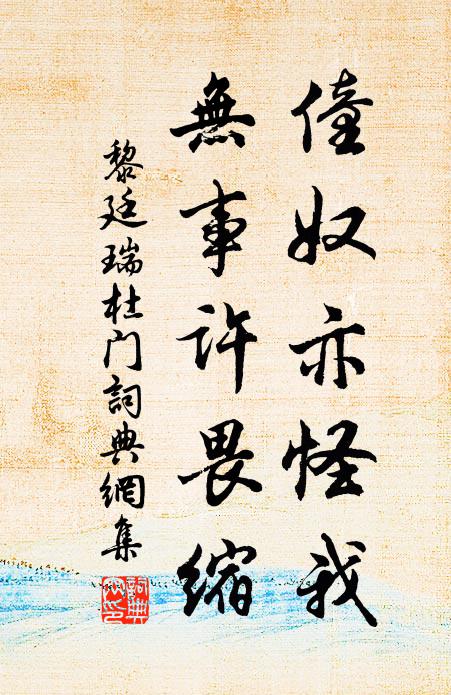 僮奴亦怪我
無事許畏縮
黎廷瑞杜门詞典網集